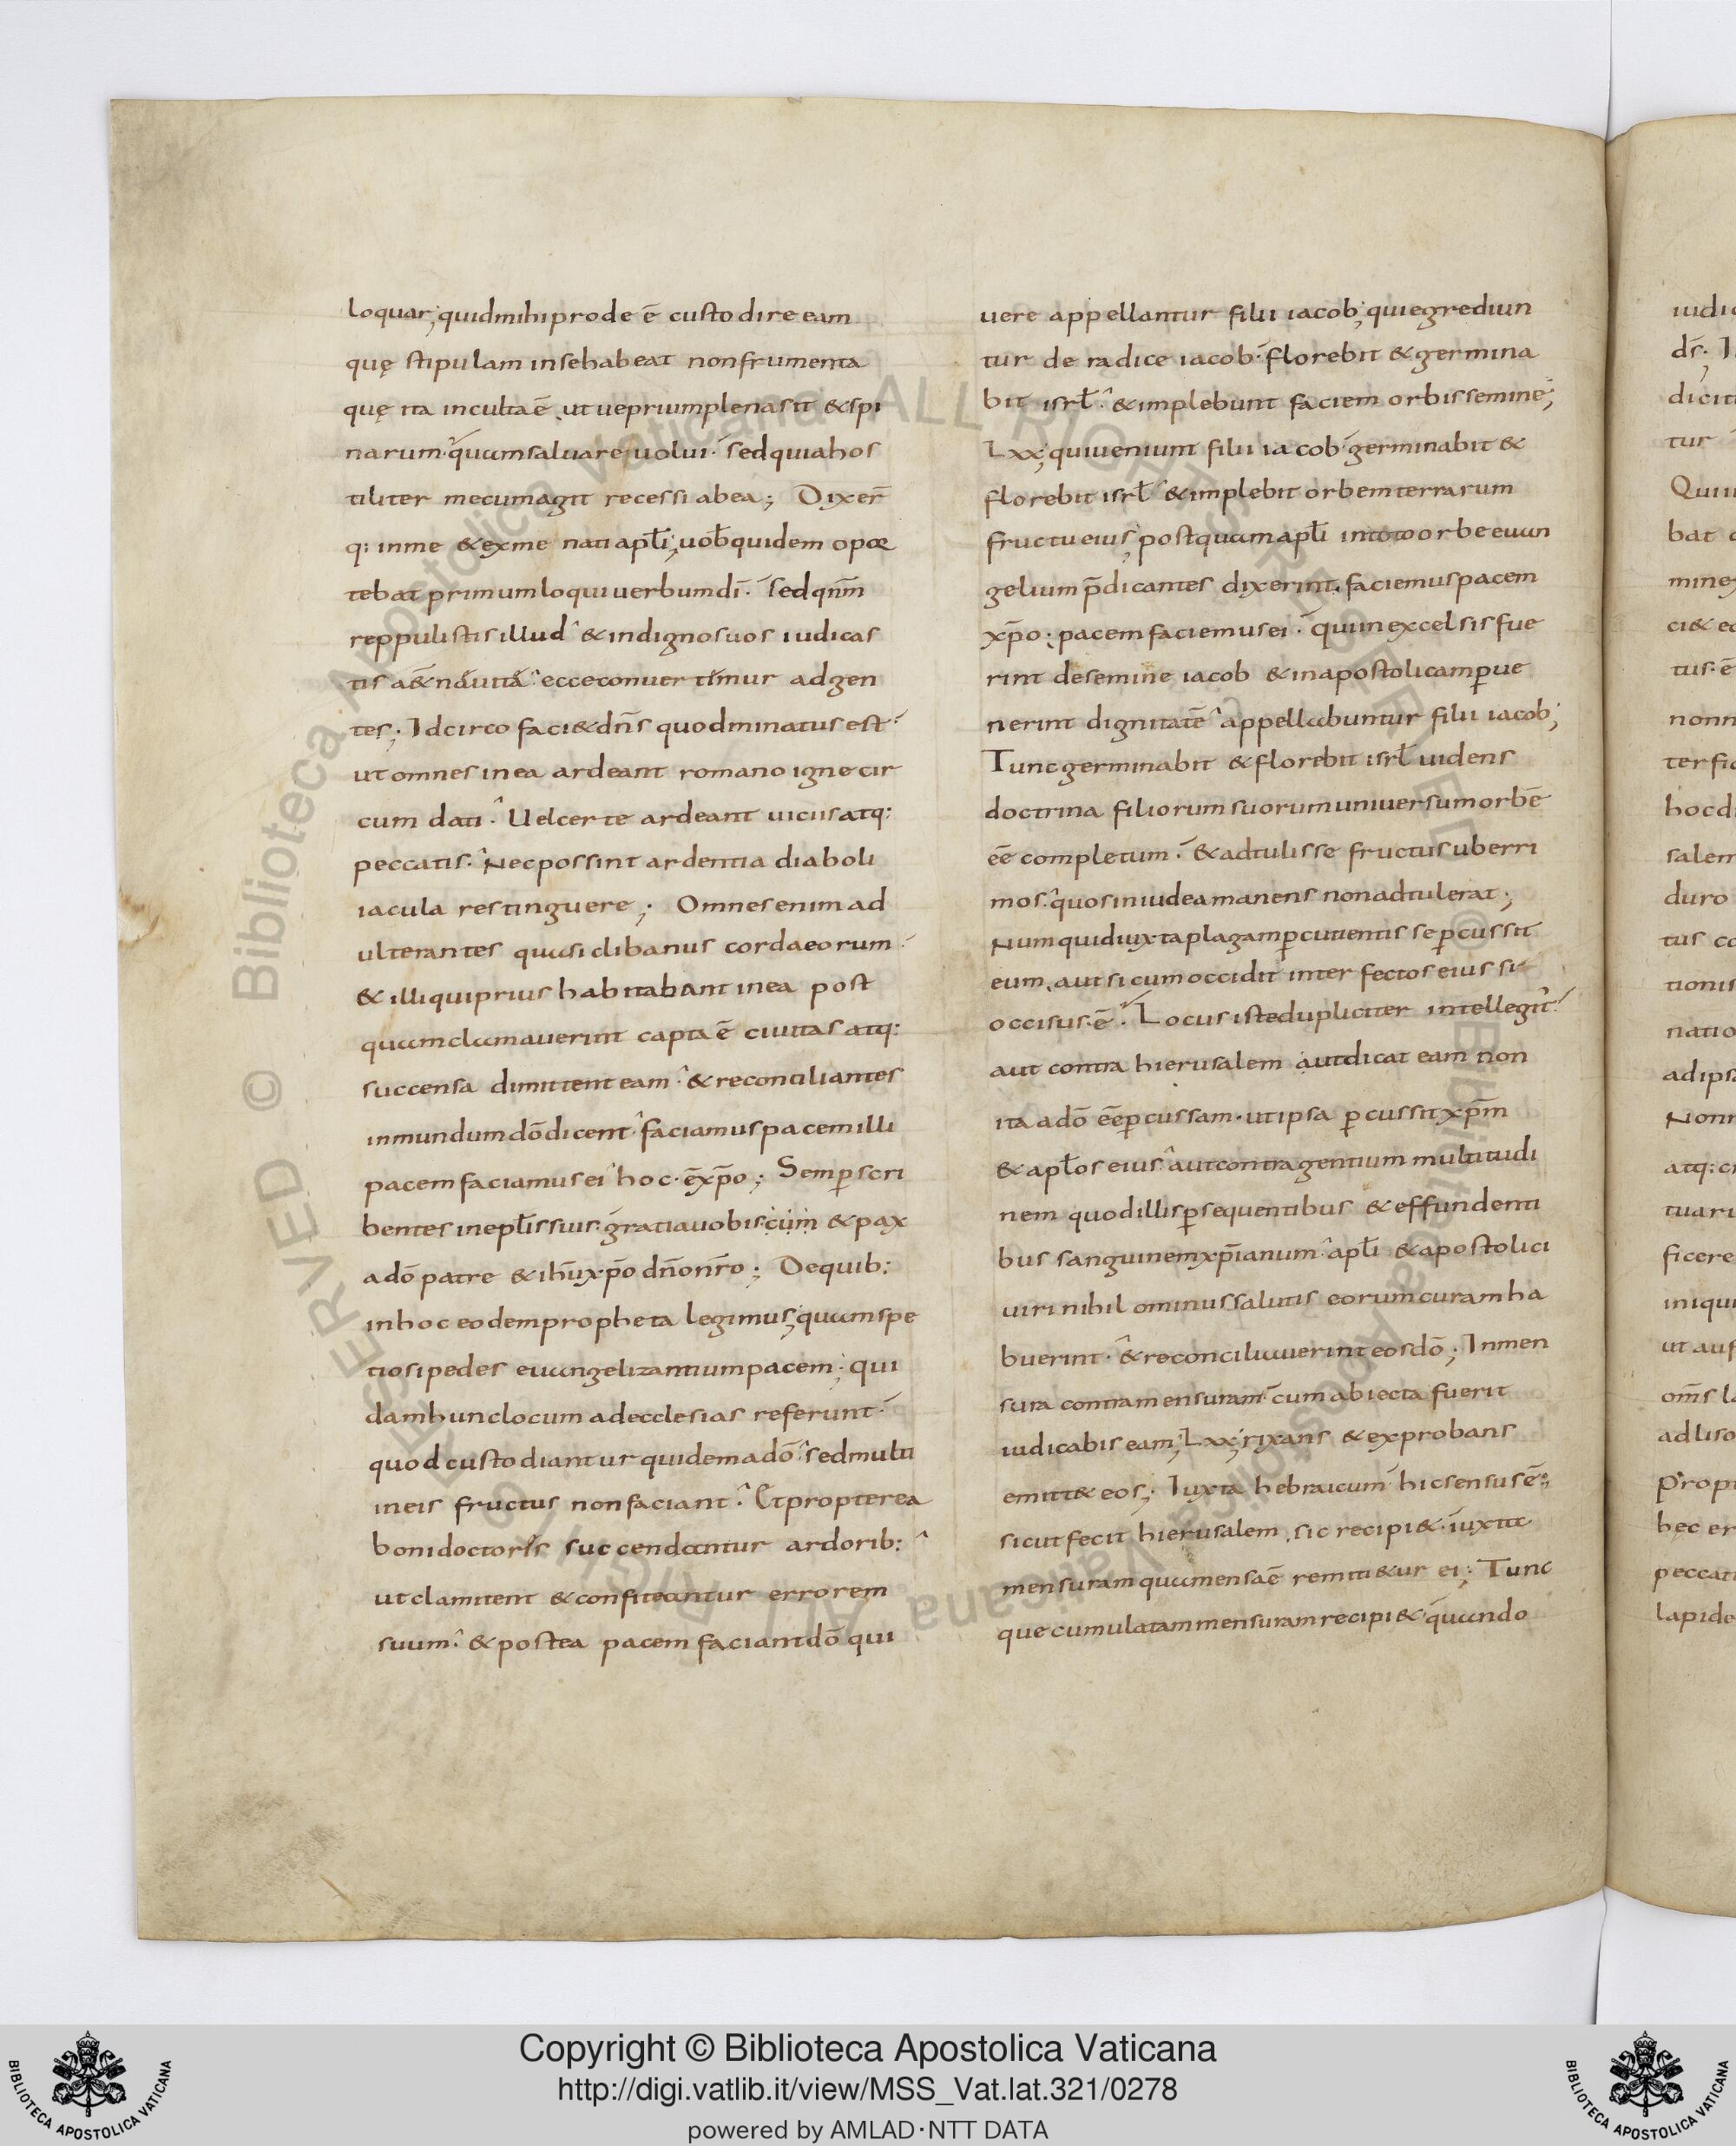 loquar; quid mihi prode ē custodire eam
quę stipulam in se habeat non frumenta
quę ita inculta ē ut ueprium plena sit & spi
narum. quam saluare uolui. sed quia hos
tiliter mecum agit recessi ab ea; Dixer̄
q: in me & ex me nati apłi; uob̄ quidem opor
tebat primum loqui uerbum dī. sed qnm̄
reppulistis illud & indignos uos iudicas
tis ecce conuertimur ad gen
tes; Idcirco faci& dn̄s quod minatus est
ut omnes in ea ardeant romano igne cir
cum dati. Uel certe ardeant uiciis atq:
peccatis. Nec possint ardentia diaboli
iacula restinguere; Omnes enim ad
ulterantes quasi clibanus corda eorum
& illi qui prius habitabant in ea post
quam clamauerint capta ē ciuitas atq:
succensa dimittent eam & reconciliantes
inmundum dō dicent. faciamus pacem illi
pacem faciamus ei hoc. ē xp̄o; Semp̄ scri
bentes in epłis suis. gratia uobis cum & pax
a dō patre & ih̄u xp̄o dn̄o nr̄o; De quib:
in hoc eodem propheta legimus; quam spe
tiosi pedes euangelizantium pacem; qui
dam hunc locum ad ecclesias referunt.
quod custodiantur quidem a dō. sed multi
in eis fructus non faciant. Et propterea
boni doctoris succendantur ardorib:
ut clamitent & confiteantur errorem
suum. & postea pacem faciant dō qui
uere appellantur filii iacob; qui egrediun
tur de radice iacob. florebit & germina
bit isrł. & implebunt faciem orbis semine;
Lxx; qui ueniunt filii iacob germinabit &
florebit isrł & implebit orbem terrarum
fructu eius; postquam apłi in toto orbe euan
gelium p̄dicantes dixerint. faciemus pacem
xp̄o; pacem faciemus ei. qui in excelsis fue
rint de semine iacob & in apostolicam p̄ue
nerint dignitatē appellabuntur filii iacob;
Tunc germinabit & florebit isrł uidens
doctrina filiorum suorum uniuersum orbē
eē completum. & adtulisse fructus uberri
mos. quos in iudea manens non adtulerat;
Numquid iuxta plagam p̄cutientis se p̄cussit
eum, aut si cum occidit inter fectos eius sic
occisus ē. Locus iste dupliciter intellegit̄
aut contra hierusalem aut dicat eam non
ita a dō eē p̄cussam. ut ipsa p̄cussit xp̄m
& apłos eius aut contra gentium multitudi
nem quod illis p̄sequentibus & effundenti
bus sanguinem xp̄ianum. apłi & apostolici
uiri nihil ominus salutis eorum curam ha
buerint. & reconciliauerint eos dō; In men
sura contra mensuram cum abiecta fuerit
iudicabis eam; Lxx; rixans & exprobans
emitt& eos; Iuxta hebraicum hic sensus ē;
sicut fecit hierusalem, sic recipi&. iuxta
mensuram qua mensa ē remitti&ur ei; Tunc
que cumulatam mensuram recipi& quando
Copyright © Biblioteca Apostolica Vaticana
http://digi.vatlib.it/view/MSS_Vat.lat.321/0278
powered by AMLAD·NTT DATA
BIBLIOTECA APOSTOLICA VATICANA
BIBLIOTECA APOSTOLICA VATICANA